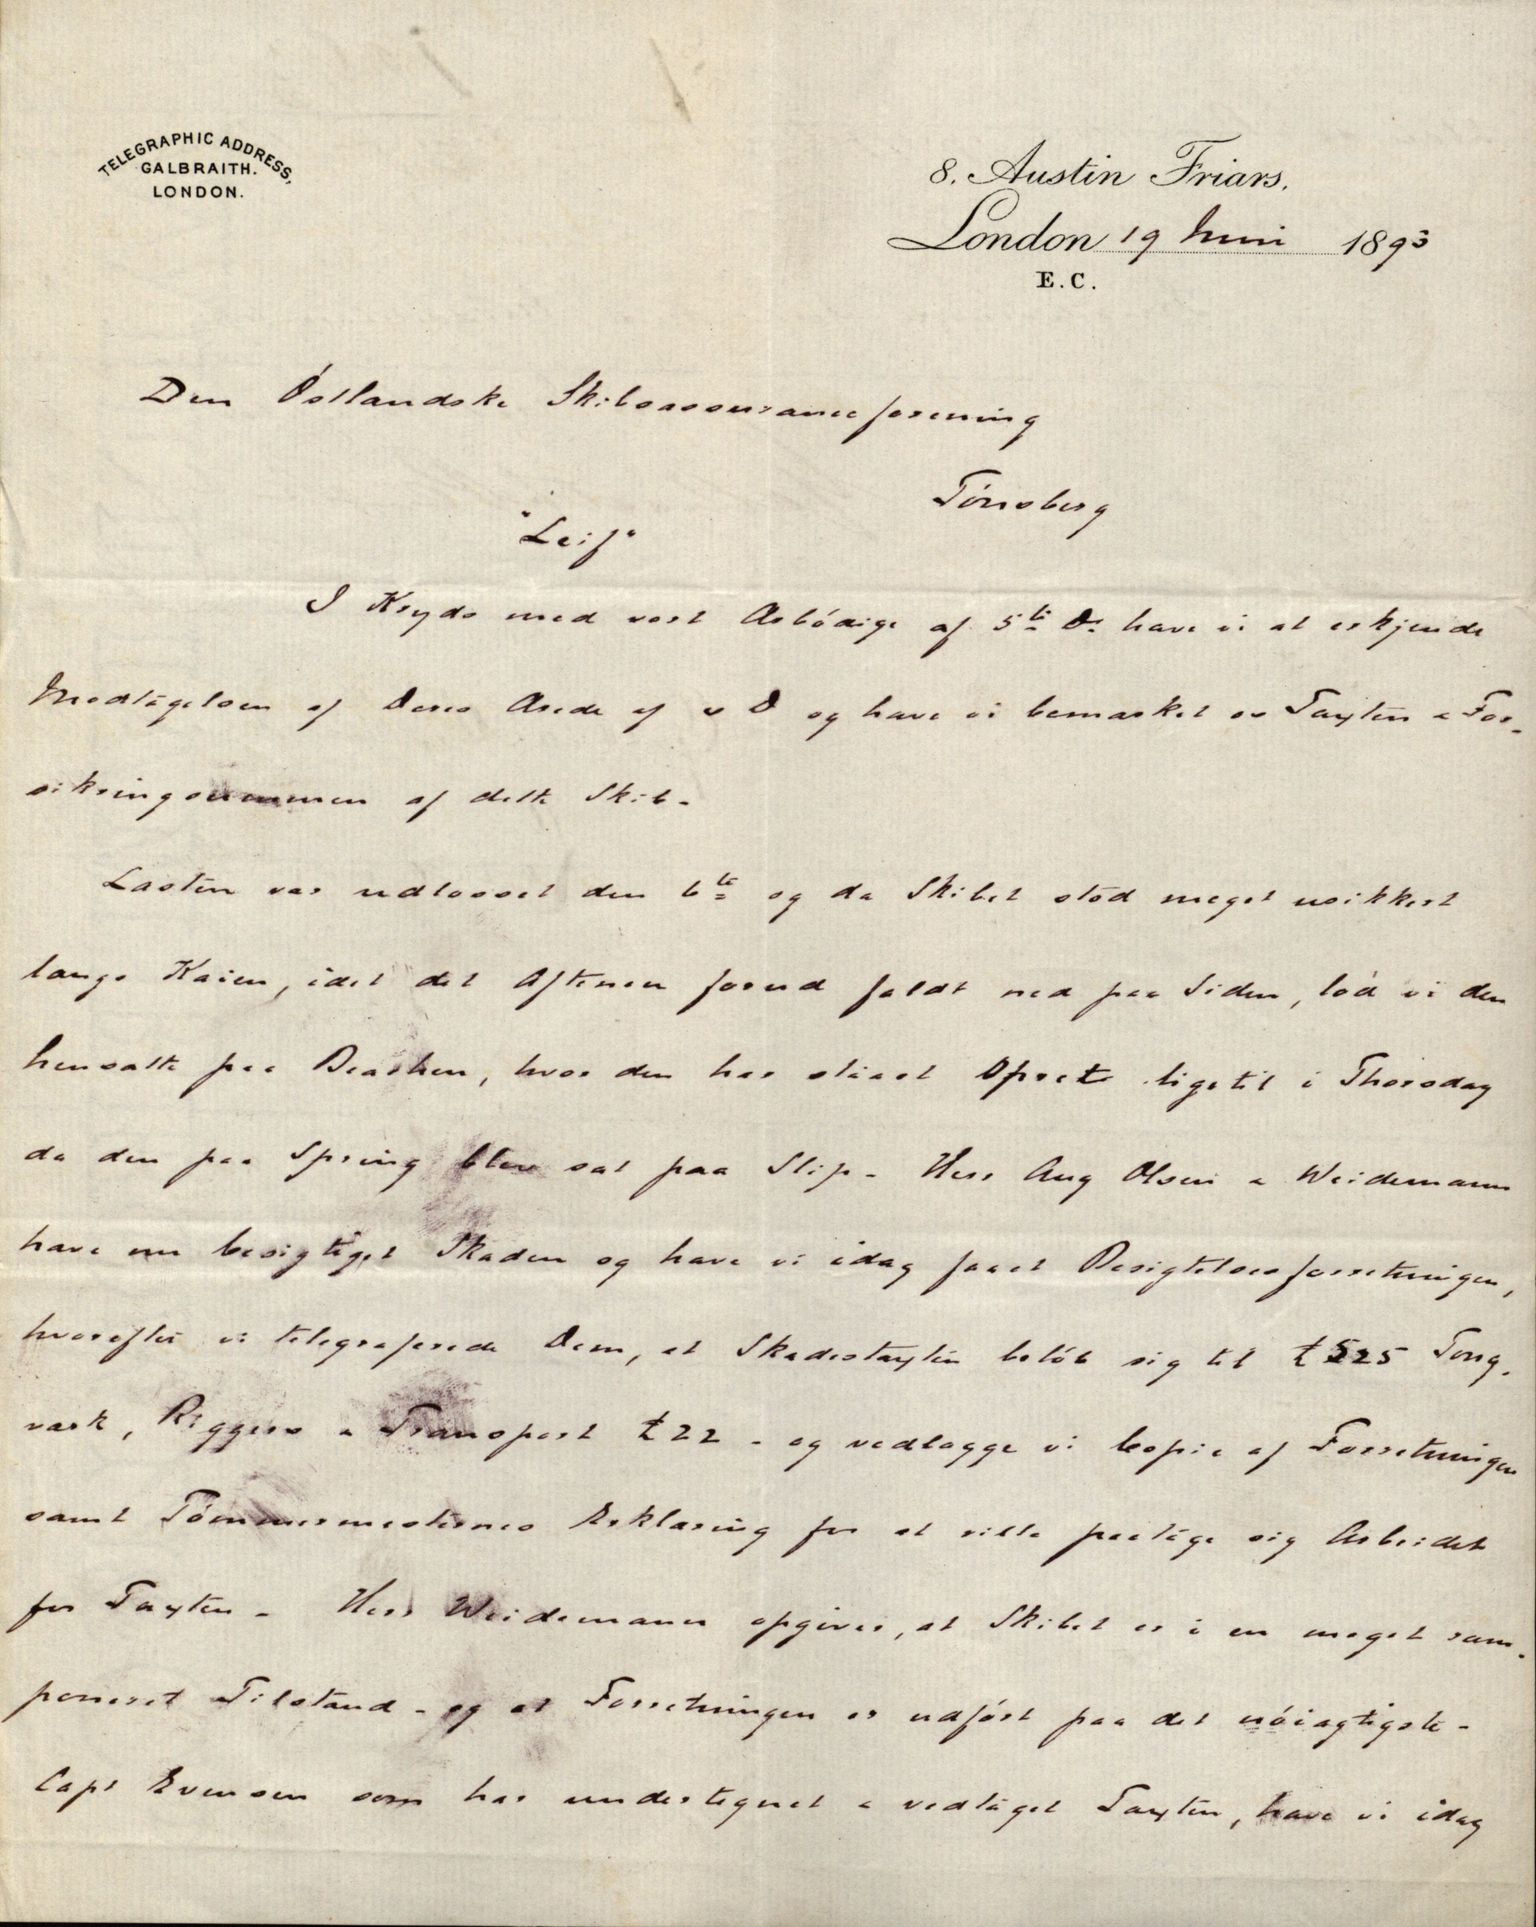 TELEGRAPHIC ADDRESS,
GALBRAITH.
LONDON.
8. Austin Friars.
London 19 Juni 1893
E.C.
Den Östlandske Skibsassuranceforening
Tönsberg
"Leif"
I Kryds med vort Ærbödige af 5te Ds have vi at erkjende
Modtagelsen af Deres Ærede af s D og have vi bemærket os Taxten & For-
sikringsummen af dette Skib -
Lasten var udlosset den 6te og da Skibet stod meget usikkert
langs Kaien, idet det Aftenen forud faldt ned paa Siden, lod vi den
hensætte paa Beachen, hvor den har staaet Opret ligetil i Thorsdag
da den paa Spring blev sat paa Slip - Herr Aug Olsen & Weidemann
have nu besigtiget Skaden og have vi idag faaet Besigtelsesforretningen,
hvorefter vi telegraferede Dem, at Skadestaxten belöb sig til £525 Toug-
værk, Riggers & Transport £22 - og vedlægge vi Copie af Forretningen
samt Tömmermesternes Erklæring for at ville paatage sig Arbeidet
for Taxten - Herr Weidemann opgiver, at Skibet er i en meget ram-
poneret Tilstand - og at Forretningen er udfört paa det nöiagtigste -
Capt Evensen som har undertegnet & vedtaget Taxten, have vi idag